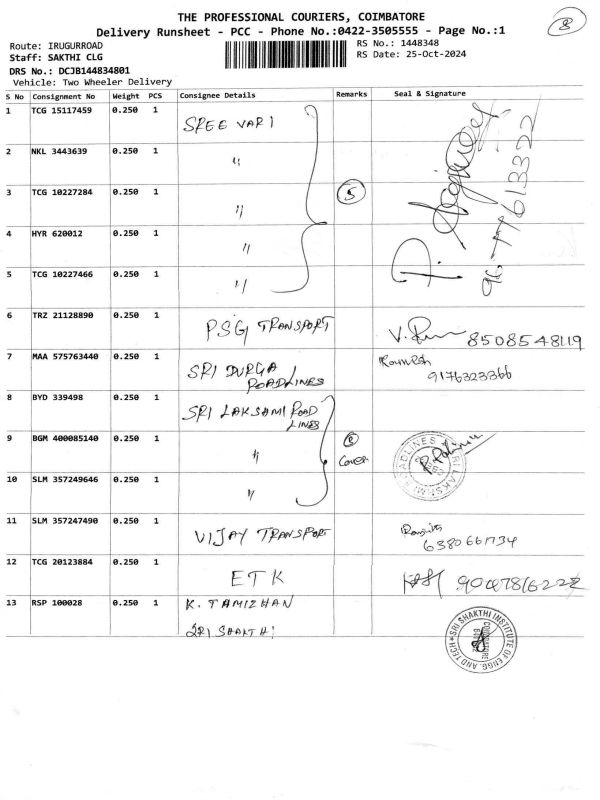 THE PROFESSIONAL COURIERS, COIMBATORE
8
Delivery Runsheet - PCC - Phone No.:0422-3505555 - Page No.:1
Route: IRUGURROAD
RS No.: 1448348
Staff: SAKTHI CLG
RS Date: 25-Oct-2024
DRS No.: DCJB144834801
Vehicle: Two Wheeler Delivery
S No Consignment No Weight PCS Consignee Details Remarks Seal & Signature
1 TCG 15117459 0.250 1 SREE VARI
2 NKL 3443639 0.250 1 〃
3 TCG 10227284 0.250 1 〃 5
4 HYR 620012 0.250 1 〃
5 TCG 10227466 0.250 1 〃
6 TRZ 21128890 0.250 1 PSG TRANSPORT 8508548119
7 MAA 575763440 0.250 1 SRI DURGA
ROADLINES 9176323366
8 BYD 339498 0.250 1 SRI LAKSAMI ROAD
LINES
9 BGM 400085140 0.250 1 〃 Cover
10 SLM 357249646 0.250 1 〃
11 SLM 357247490 0.250 1 VIJAY TRANSPORT
12 TCG 20123884 0.250 1 ETK
13 RSP 100028 0.250 1 K. TAMIZHAN
SRI SHAKTHI
SRI SHAKTHI INSTITUTE OF ENGG. AND TECH